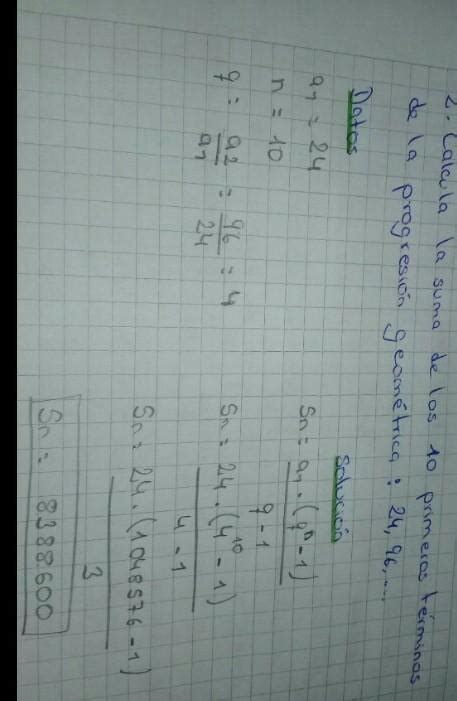 2. Calcula la suma de los 10 primeros términos
de la progresión geométrica: 24, 96,...
Datos
a₁ = 24
n = 10
q = a₂/a₁ = 96/24 = 4
Solución
Sn = a₁ · (qⁿ - 1) / q - 1
Sn = 24 · (4¹⁰ - 1) / 4 - 1
Sn = 24 · (1048576 - 1) / 3
Sn = 8388600